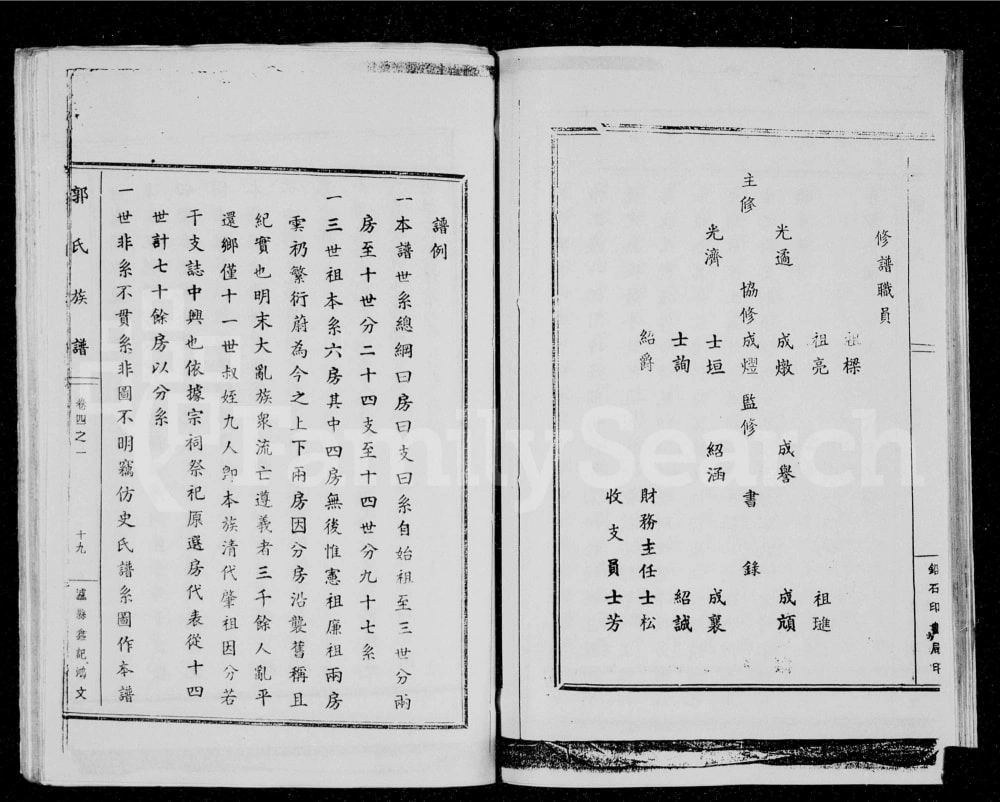 修譜職員
祖樑
祖亮
祖璡
光適
成燉
成譽
成頎
主修
協修
成熤
監修
書錄
光濟
士垣
紹涵
成襄
士詢
紹誠
紹爵
財務主任士松
收支員士芳
石印
譜例
一本譜世系總綱曰房曰支曰系自始祖至三世分兩
房至十世分二十四支至十四世分九十七系
一三世祖本系六房其中四房無後惟憲祖廉祖兩房
雲礽繁衍蔚為今之上下兩房因分房沿襲舊稱且
紀實也明末大亂族衆流亡遵義者三千餘人亂平
還鄉僅十一世叔姪九人即本族清代肇祖因分若
干支誌中興也依據宗祠祭祀原選房代表從十四
世計七十餘房以分系
一世非系不貫系非圖不明竊仿史氏譜系圖作本譜
郭氏族譜
卷四之一
十九
瀘縣鑫記鴻文
FamilySearch